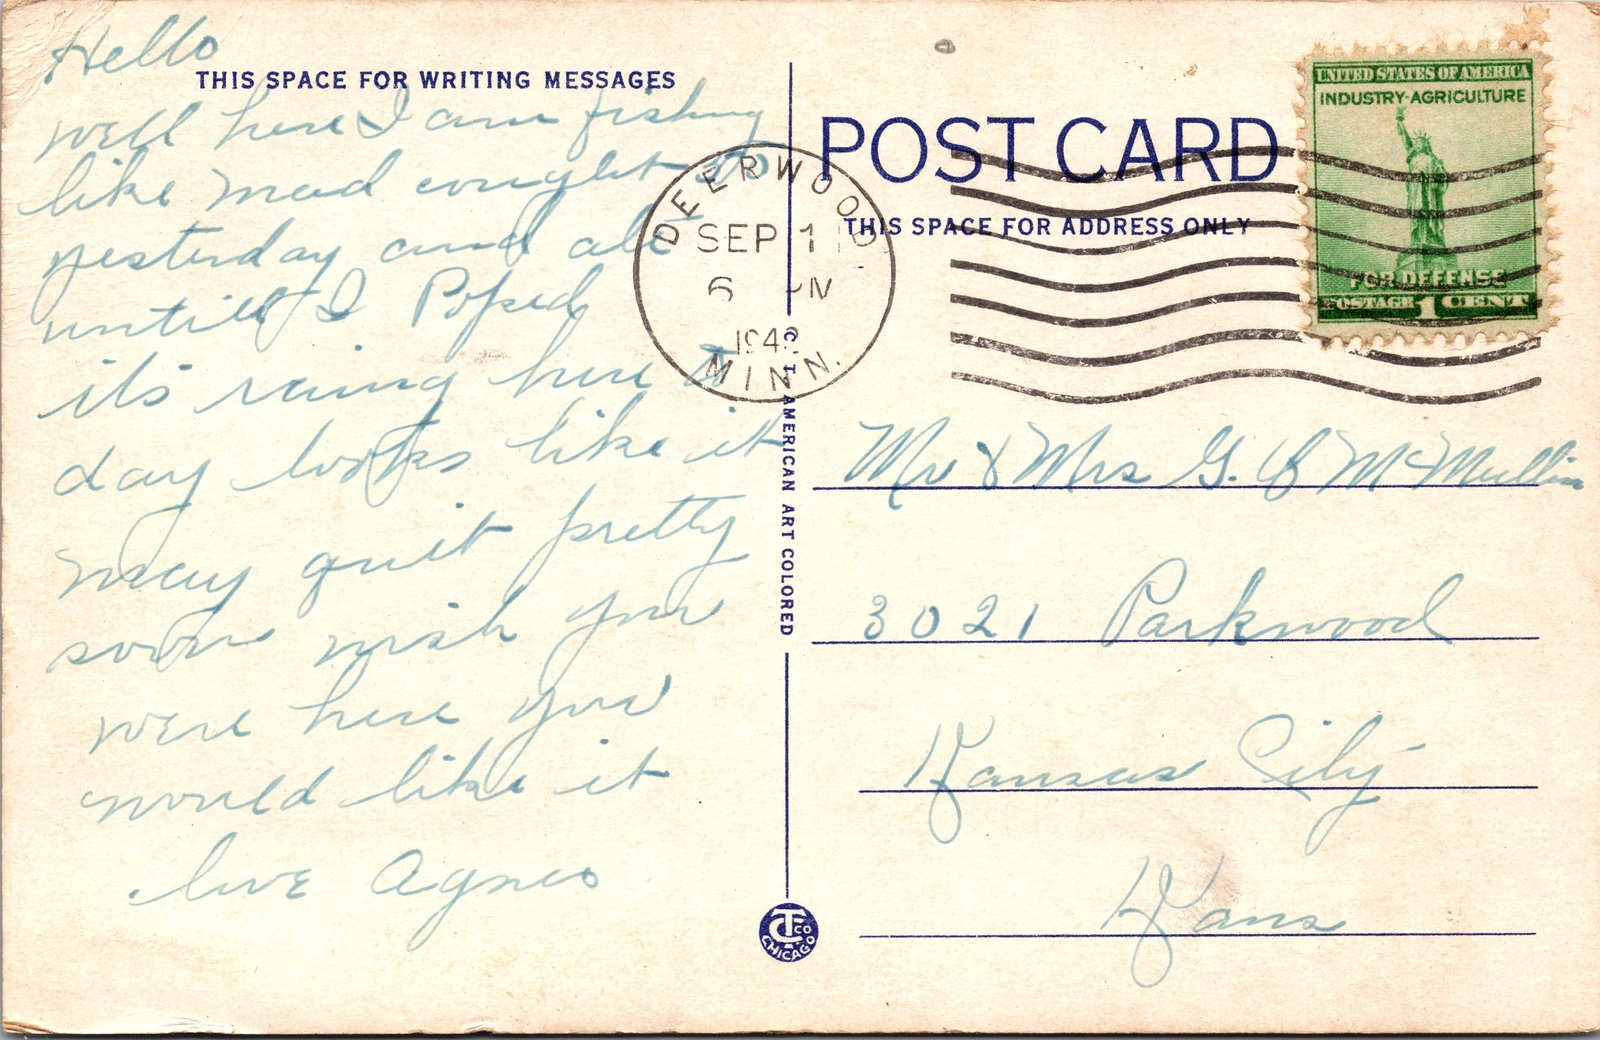 Hello
THIS SPACE FOR WRITING MESSAGES
well here I am fishing
like mad cought 20
yesterday and ate
untill I Poped
it's raing here to
day looks like it
may quit pretty
soon wish you
were here you
would like it
love Agnes
DEERWOOD
SEP 1
6 PM
194
MINN.
C. T. AMERICAN ART COLORED
CT CO
CHICAGO
POST CARD
THIS SPACE FOR ADDRESS ONLY
UNITED STATES OF AMERICA
INDUSTRY-AGRICULTURE
FOR DEFENSE
POSTAGE 1 CENT
Mr & Mrs G. B McMullin
3021 Parkwood
Kansas City
Kans